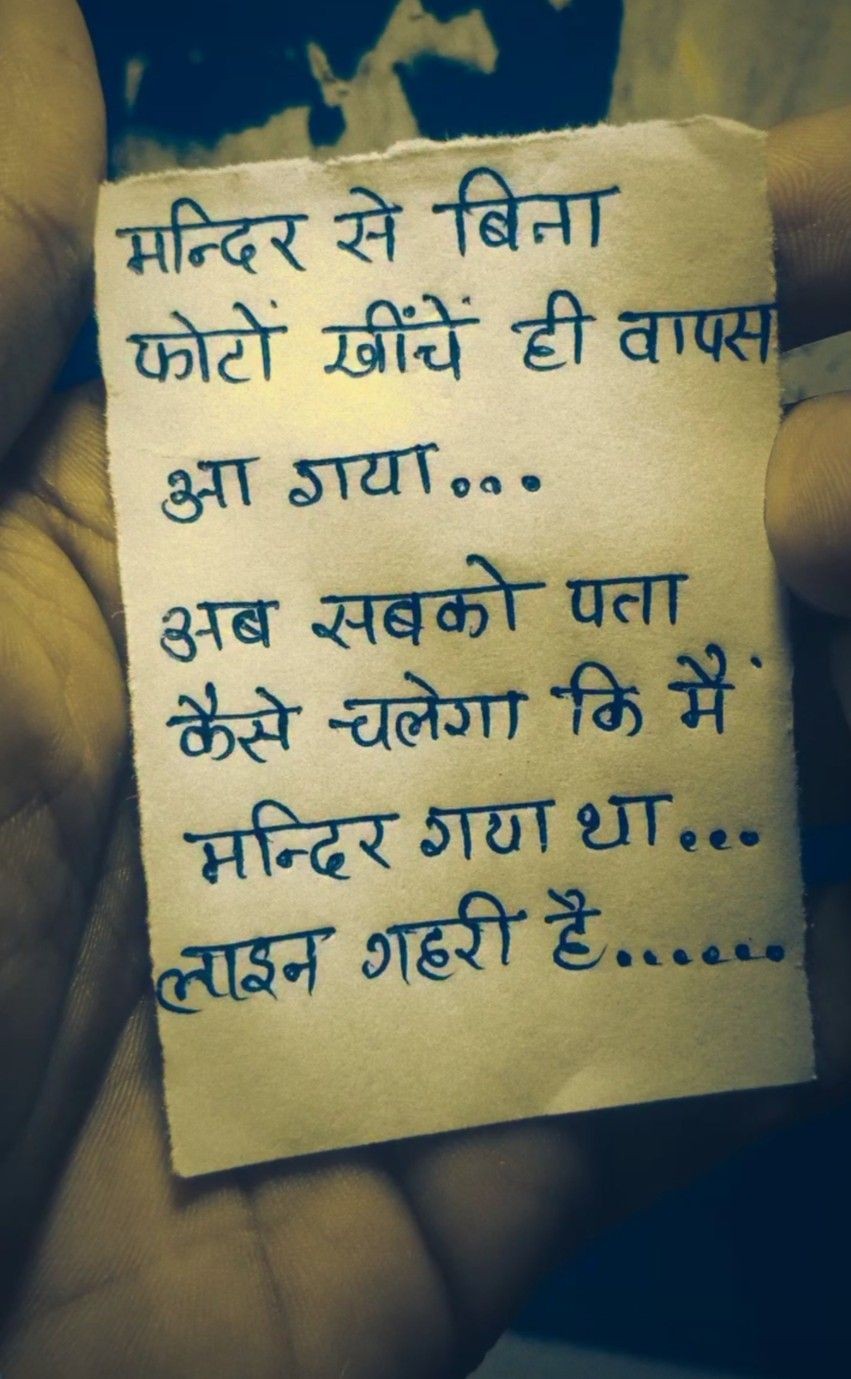 मन्दिर से बिना
फोटों खींचें ही वापस
आ गया...
अब सबको पता
कैसे चलेगा कि मैं
मन्दिर गया था...
लाइन गहरी है......